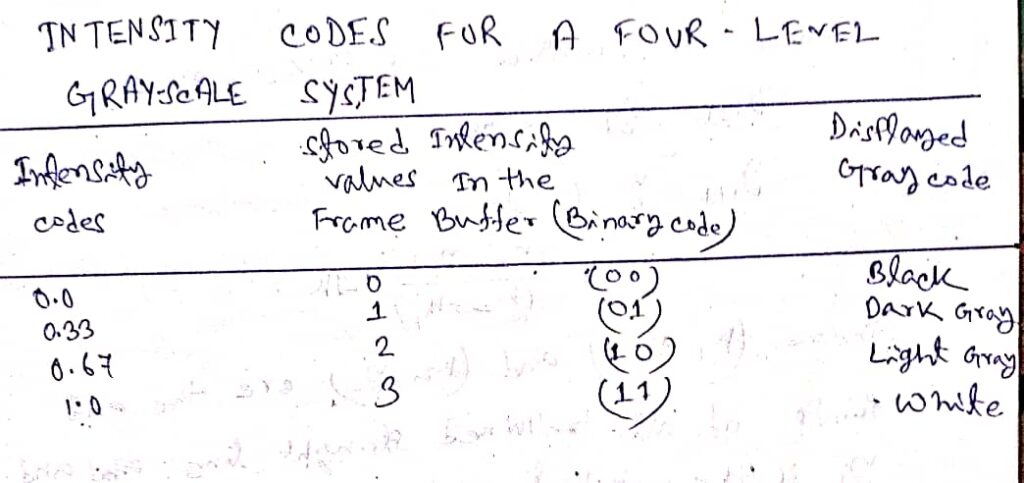 INTENSITY CODES FOR A FOUR-LEVEL
GRAY-SCALE SYSTEM
Intensity codes
Stored Intensity values In the Frame Buffer (Binary code)
Displayed Gray code
0.0 0 (00) Black
0.33 1 (01) Dark Gray
0.67 2 (10) Light Gray
1.0 3 (11) White